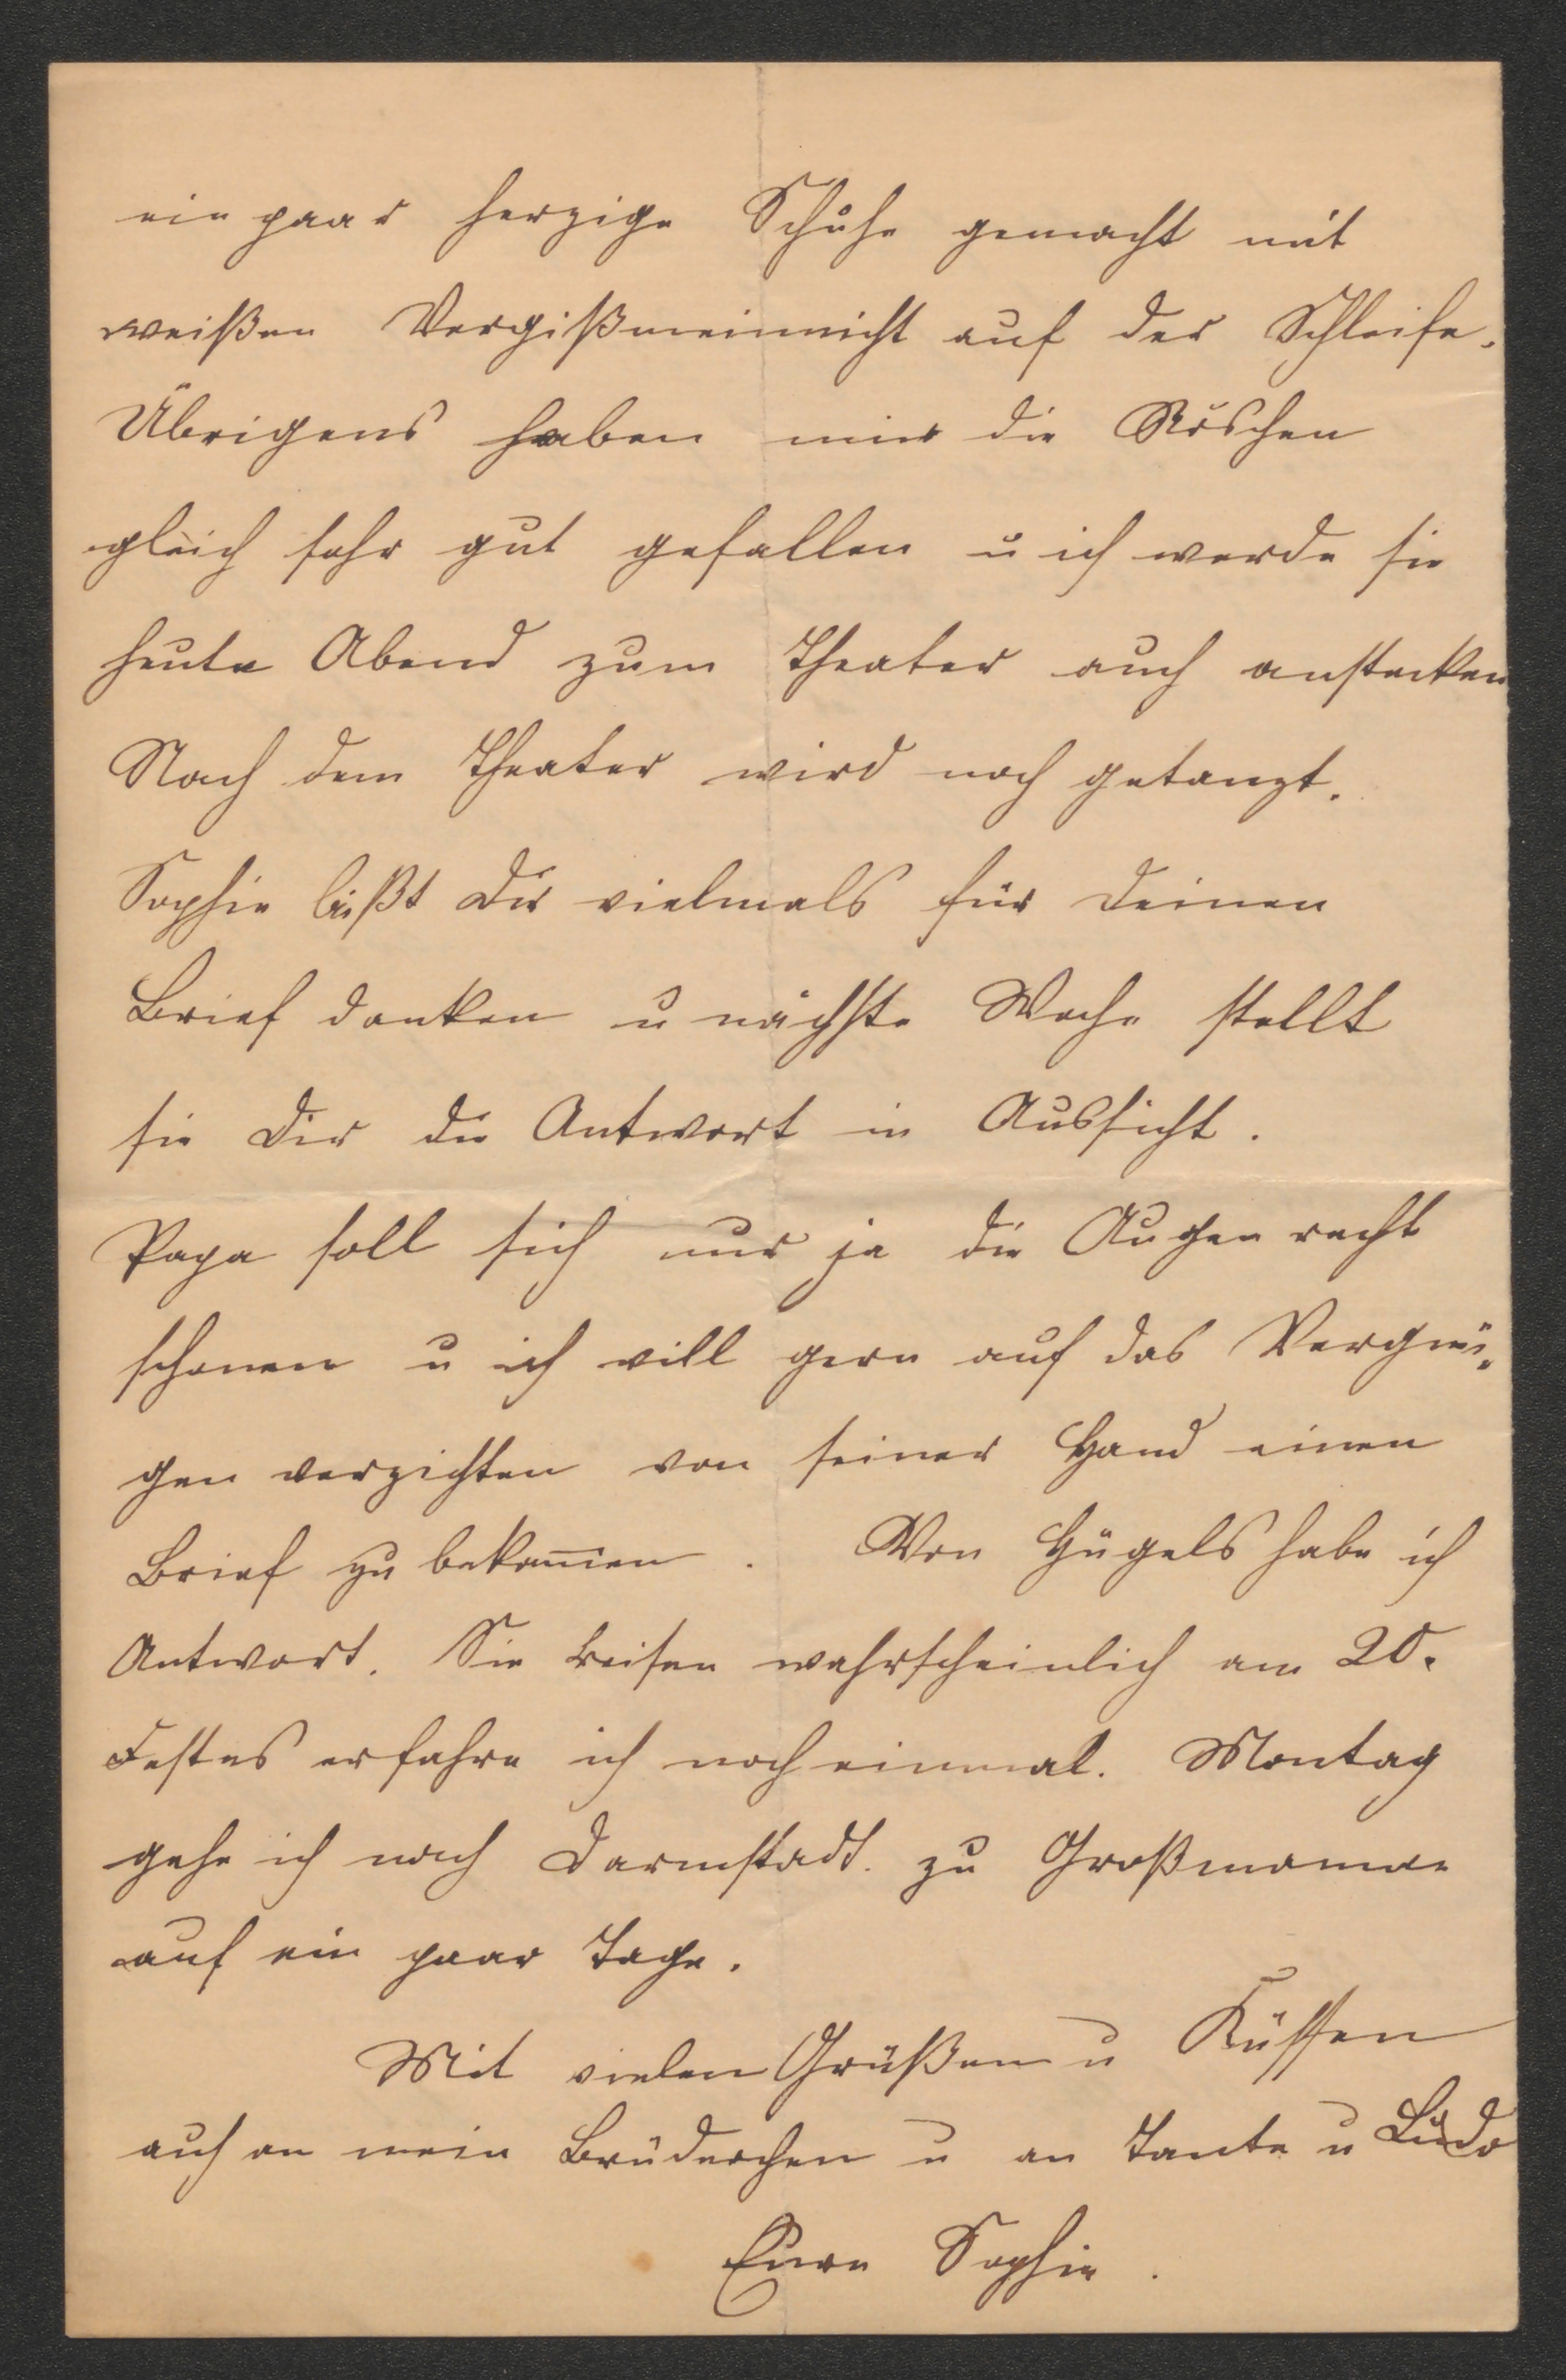 ein paar herzige Schuhe gemacht mit
weißen Vergißmeinnicht auf der Schleife.
Übrigens haben mir die Röschen
gleich sehr gut gefallen u ich werde sie
heute Abend zum Theater auch anstecken
Nach dem Theater wird noch getanzt.
Sophie läßt Dir vielmals für Deinen
Brief danken u nächste Woche stellt
sie Dir die Antwort in Aussicht.
Papa soll sich nur ja die Augen recht
schonen u ich will gern auf das Vergnü-
gen verzichten von seiner Hand einen
Brief zu bekom̅en. Von Hügels habe ich
Antwort. Sie reisen wahrscheinlich am 20.
Festes erfahre ich noch einmal. Montag
gehe ich nach Darmstadt. zu Großmama
auf ein paar Tage.
Mit vielen Grüßen u Küssen
auch an mein Brüderchen u an Tante u
Eure Sophie.